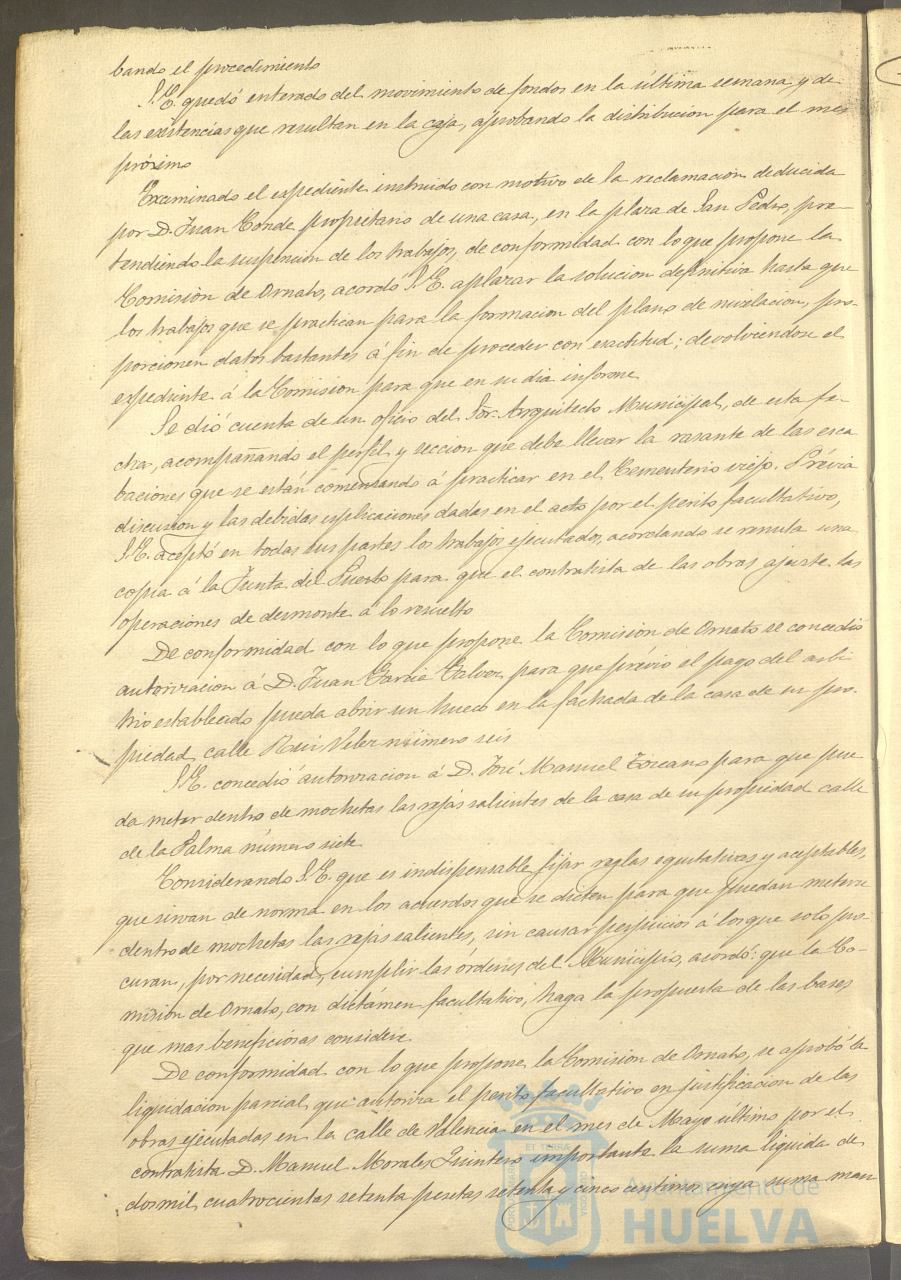 bando el procedimiento
S.E. quedó enterado del movimiento de fondos en la última semana y de
las existencias que resultan en la caja, aprobando la distribucion para el mes
próximo
Examinado el espediente instruido con motivo de la reclamacion deducida
por D. Juan Conde propietario de una casa, en la plaza de San Pedro, pre-
tendiendo la suspension de los trabajos, de conformidad con lo que propone la
Comision de Ornato, acordó S.E. aplazar la solucion definitiva hasta que
los trabajos que se practican para la formacion del plano de nivelacion, pro-
porcionen datos bastantes á fin de proceder con exactitud; devolviendose el
espediente á la Comision para que en su dia informe
Se dió cuenta de un oficio del Sor. Arquitecto Municipal, de esta fe-
cha, acompañando el perfil y seccion que debe llevar la rasante de las esca
baciones que se están comenzando á practicar en el Cementerio viejo. Prévia
discusion y las debidas esplicaciones dadas en el acto por el perito facultativo,
S.E. aceptó en todas sus partes los trabajos ejecutados, acordando se remita una
copia á la Junta del Puerto para que el contratista de las obras ajuste las
operaciones de desmonte á lo resuelto
De conformidad con lo que propone la Comision de Ornato se concedió
autorizacion á D. Juan Garcia Galvez, para que prévio el pago del arbi
trio establecido pueda abrir un hueco en la fachada de la casa de su pro-
piedad calle Rui Velez número seis
S.E. concedió autorizacion á D. José Manuel Toscano para que pue
da meter dentro de mochetas las rejas salientes de la casa de su propiedad calle
de la Palma número siete
Considerando S.E. que es indispensable fijar reglas equitativas y aceptables,
que sirvan de norma en los acuerdos que se dicten para que puedan meterse
dentro de mochetas las rejas salientes, sin causar perjuicios á los que solo pro-
curan, por necesidad, cumplir las órdenes del Municipio, acordó: que la Co-
mision de Ornato, con dictámen facultativo, haga la propuesta de las bases
que mas beneficiosas considere.
De conformidad con lo que propone la Comision de Ornato, se aprobó la
liquidacion parcial que autoriza el perito facultativo en justificacion de las
obras ejecutadas en la calle de Valencia en el mes de Mayo último por el
contratista D. Manuel Morales Quintero importante la suma líquida de
dos mil cuatrocientas setenta pesetas setenta y cinco centimos cuya suma man
Ayuntamiento de
HUELVA